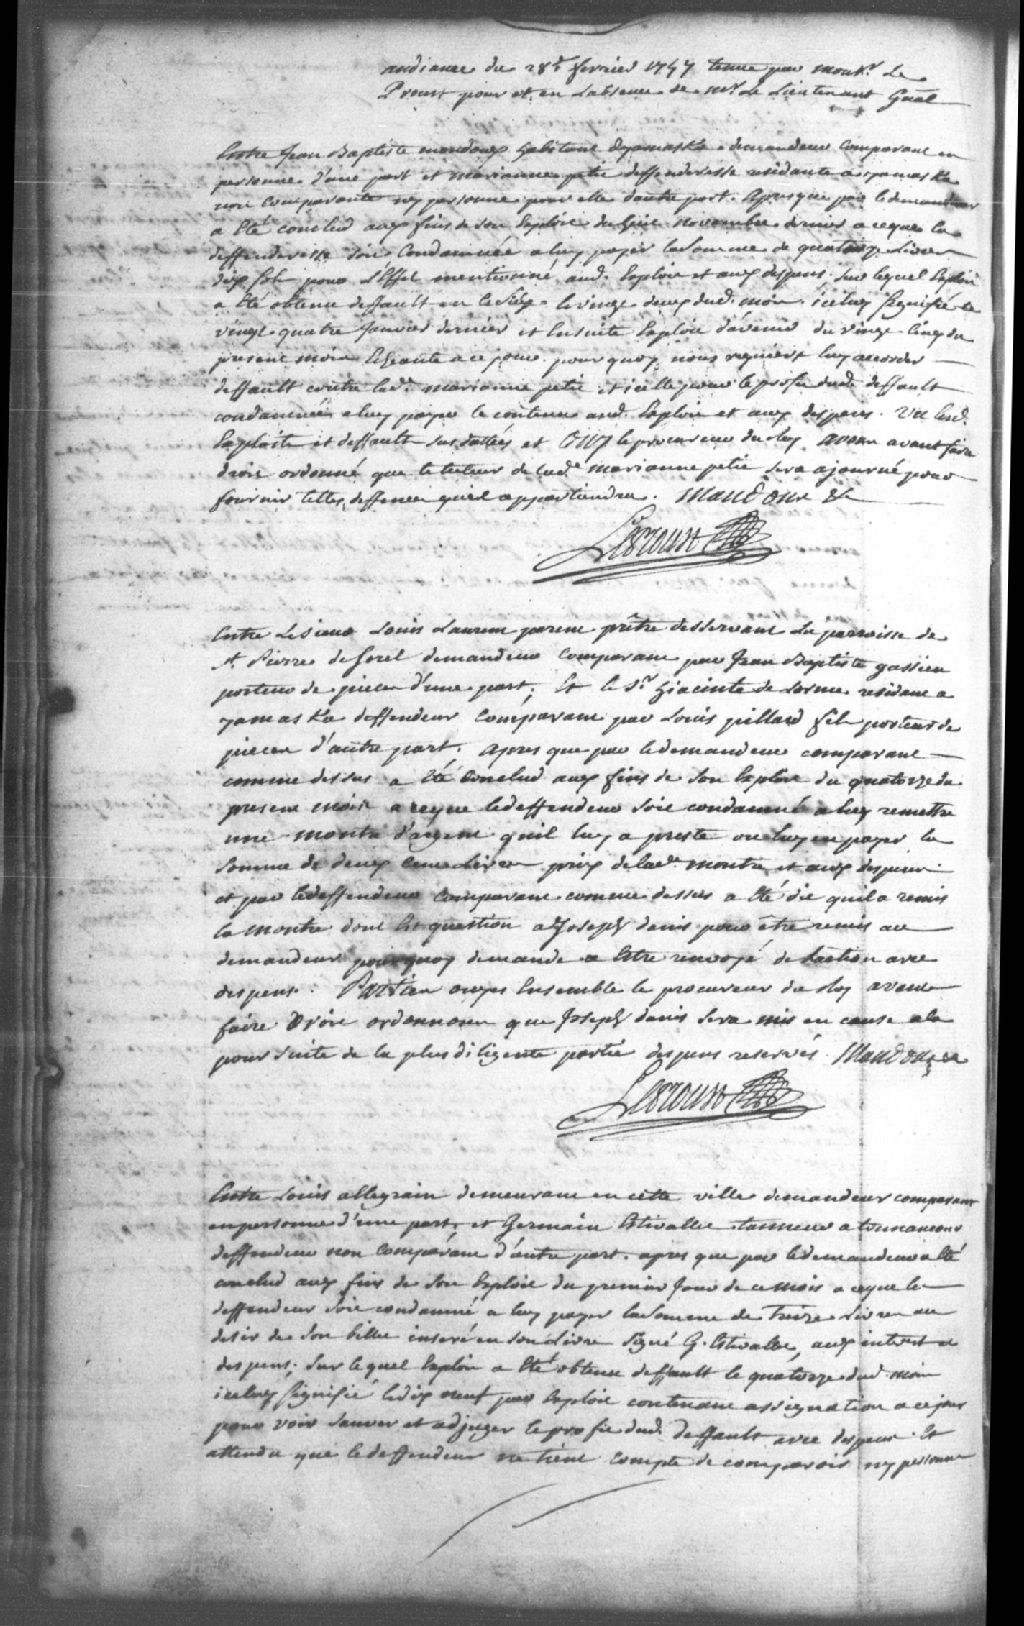 audiance du 28e fevrier 1747 tenue par monsr. Le
Prevost pour et en Labsence de mr. Le Lieutenant Gnal
Entre Jean Baptiste mandoux habitant dyamaska demandeur Comparant en
personne d'une part et marianne petit deffenderesse residante a yamaska
non Comparante ny personne pour elle dautre part. Apres que par le demandeur
a Eté conclud aux fins de son Exploit du huit novembre dernier a ceque la
deffenderesse soit Condamnée a luy payer la Somme de quatorze Livres
dix sols pour L'Effet mentionné aud. Exploit et aux depens. Sur lequel Exploit
a Eté obtenu deffault en le Siege le vingt deux dud. mois. icelluy Signifié le
vingt quatre Janvier dernier et Ensuite Exploit d'avenir du vingt cinq du
present mois Echeante a ce jour. pourquoy nous requiert luy accorder
deffault contre lade. marianne petit et icelle pour le profit dudt. deffault
condamnée a luy payer le contenu aud. Exploit et aux depens. Vu lesd.
Exploits et deffault sus dattés et Ouy le procureur du Roy avons avant faire
droit ordonné que le tuteur de lade. marianne petit sera ajourné pour
fournir telles deffences quil appartiendra. Mandons &c
Leproust
Entre Le Sieur Louis Laurent parent prêtre desservant La parroisse de
St. Pierre de Sorel demandeur Comparant par Jean Baptiste gastien
porteur de pieces d'une part; Et le Sr. hiacinte de Lorme resident a
yamaska deffendeur Comparant par Louis pillard fils porteur de
pieces d'autre part. Apres que par le demandeur comparant
comme dessus a Eté Conclud aux fins de son Exploit du quatorze du
present mois a ceque le deffendeur soit condamné a luy remettre
une montre d'argent quil luy a presté ou luy en payer la
Somme de deux cens Livres prix de lade. montre et aux depens
et par le deffendeur Comparant comme dessus a Eté dit quil a remis
la montre dont Est question a Joseph denis pour être remis au
demandeur pourquoy demande a Estre renvoyé de Laction avec
depens. Parties ouyes Ensemble le procureur du Roy avant
faire Droit ordonnons que Joseph denis sera mis en cause a la
poursuite de la plus diligente partie depens reservés. Mandons &a
Leproust
Entre Louis allegrain demeurant en cette ville demandeur comparant
en personne d'une part, et Germain Estivalle tanneur a tonnancour
deffendeur non Comparant d'autre part. apres que par le demandeur a Eté
conclud aux fins de son Exploit du premier Jour de ce mois a ceque le
deffendeur soit condamné a luy payer la Somme de Treize Livres au
desir de son billet inseré en son Livre Signé G. Estivalle, aux interest et
depens; Sur lequel Exploit a Eté obtenu deffault le quatorze dud. mois
icelluy Signifié le dix neuf par Exploit contenant assignation a ce jour
pour voir Sauver et adjuger le profit dud. deffault avec depens. Et
attendu que le deffendeur ne tient compte de comparoir ny personne